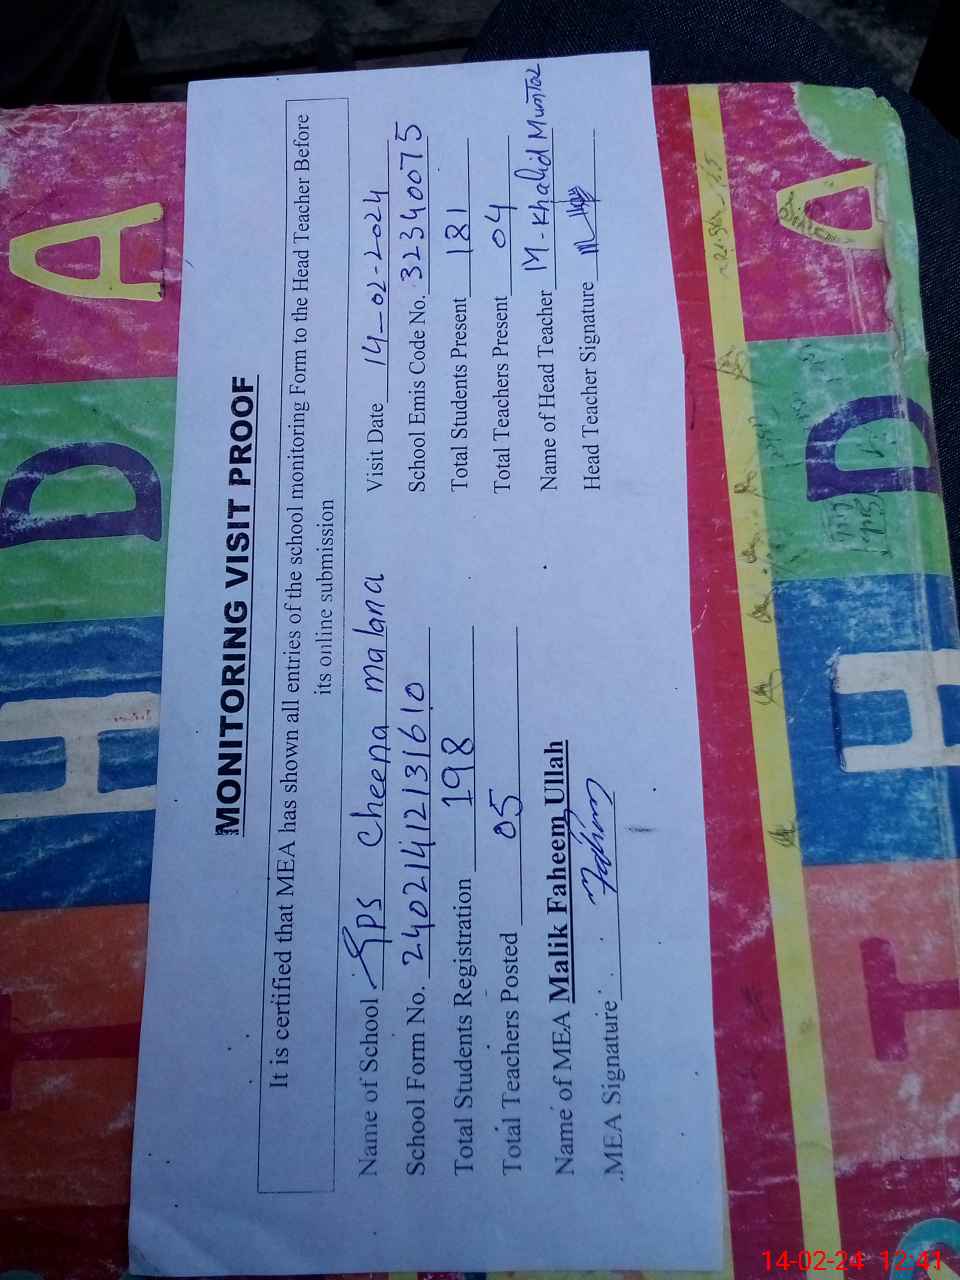 MONITORING VISIT PROOF
It is certified that MEA has shown all entries of the school monitoring Form to the Head Teacher Before
its online submission
Name of School GPS Cheena malana
Visit Date 14-02-2024
School Form No. 240214121131610
School Emis Code No. 32340075
Total Students Registration 198
Total Students Present 181
Total Teachers Posted 05
Total Teachers Present 04
Name of MEA Malik Faheem Ullah
Name of Head Teacher M-Khalid Mumtaz
MEA Signature Fahim
Head Teacher Signature
T H D A
T H D A
14-02-24 12:41